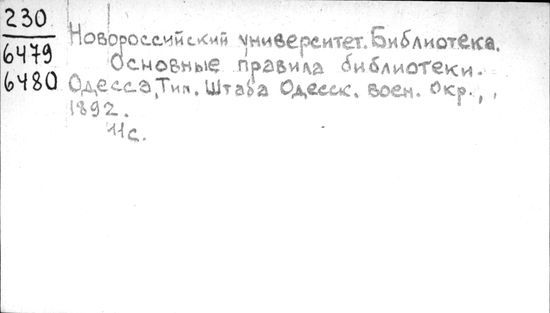 230
6479
6480
Новороссийский университет. Библиотека.
Основные правила библиотеки.
Одесса, Тип. Штаба Одесск. воен. Окр.,
1892.
11с.